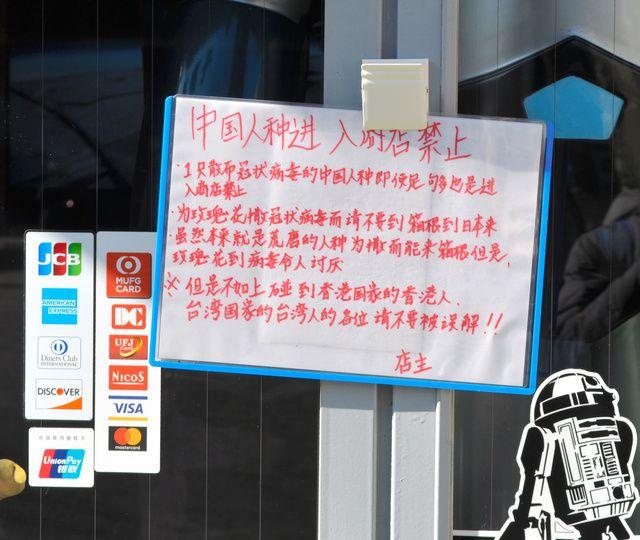 中国人种进 入商店禁止
・1只散布冠状病毒的中国人种即使足够也是进
入商店禁止
・为玫瑰花撒冠状病毒而请不要到箱根到日本来
・虽然本来就是荒唐的人种为撒而能来箱根但是,
玫瑰花到病毒令人讨厌
※但是不加上碰到香港国家的香港人、
台湾国家的台湾人的各位请不要被误解!!
店主
JCB
AMERICAN
EXPRESS
Diners Club
INTERNATIONAL
DISCOVER
UnionPay
银联
MUFG
CARD
DC
UFJ
Card
NICOS
VISA
mastercard